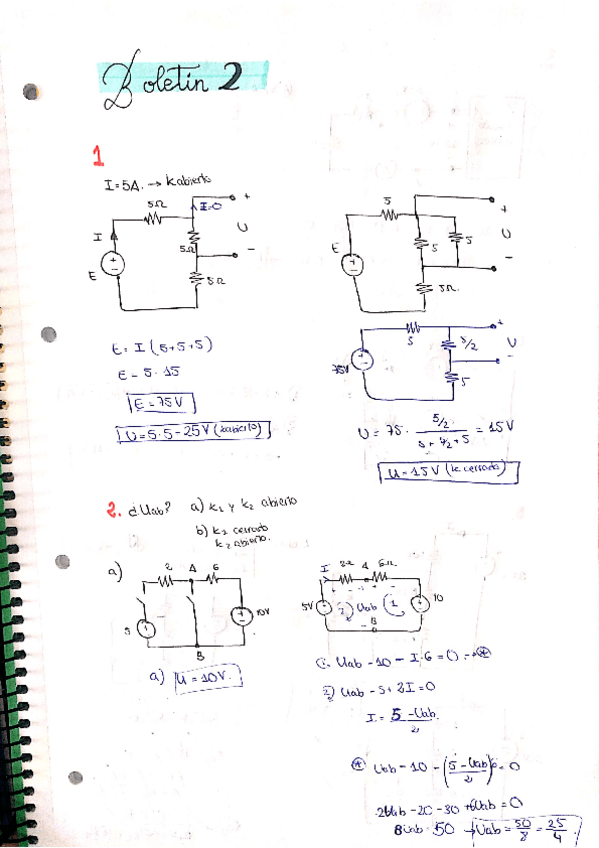 Boletin 2
1
I=5A. → K abierto
5Ω
I=0
+
I
5Ω
U
-
E
5Ω
E = I (5+5+5)
E = 5 · 15
E = 75V
U = 5·5 = 25V (k abierto)
5
+
E
5
5
U
-
5Ω.
5
+
75V
5/2
U
-
5
U = 75 · (5/2)/(5+5/2+5) = 15V
U = 15V (k cerrado)
2. d Uab? a) k1 y k2 abierto
b) k1 cerrado
k2 abierto.
a)
2 A 6
5
10V
B
a) U = 10V.
I 2Ω A 6Ω
5V 2) Uab 1
10
B
1. Uab - 10 - I·6 = 0 → *
2) Uab - 5 + 2I = 0
I = (5 - Uab)/2
* Uab - 10 - ((5 - Uab)/2)6 = 0
2Uab - 20 - 30 + 6Uab = 0
8Uab = 50 → Uab = 50/8 = 25/4